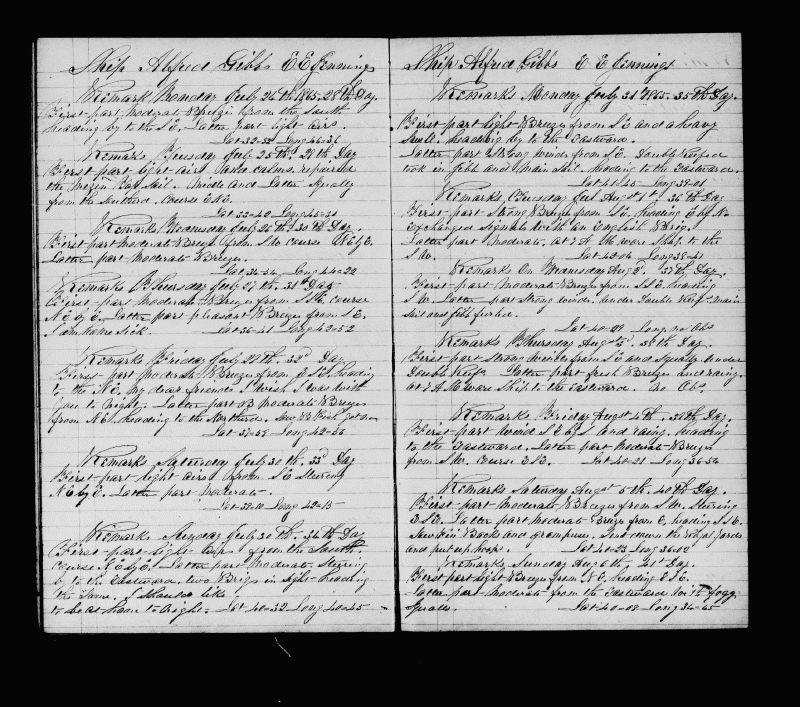 Ship Alfred Gibbs E E Jennings
Remark Monday July 24th 1865. 28th Day.
First part moderat Breezes from the South
heading by to the SE. Latter part light airs.
Lat 32-52 Long 46-31
Remarks Tuesday July 25th. 29th Day
First part light airs Parko calms. repaired
the Mizen Top Sail. Middle and Latter Squally
from the Southard. Course ENE.
Lat 33-40 Long 45-31
Remarks Wednesday July 26th. 30th Day.
First part moderate Breezes from SW course NEbyE.
Latter part moderate Breezes.
Lat 34-54 Long 44-22
Remarks Thursday July 27th. 31st Day
First part moderate Breezes from SSE. course
NEbyE. Latter part pleasant Breezes from SE.
I am Home sick. Lat 36-41 Long 42-52
Remarks Friday July 28th. 32d Day
First part moderate Breezes from ESE. heading
to the NE. my dear friends I wish I was with
you to night. Latter part moderate Breezes
from NE. heading to the Northard. Saw
Lat 37-39 Long 42-36
Remarks Saturday July 30th. 33d Day
First part light airs from SE Steering
NEbyE. Latter part moderate.
Lat 39-10 Long 42-15
Remarks Sunday July 30th. 34th Day
First part light airs from the South
course NEbyE. Latter part moderate Steering
by to the Eastward, two Brigs in sight heading
the same. I should like
to be at home to night. Lat 40-32 Long 40-45
Ship Alfred Gibbs E E Jennings
Remarks Monday July 31st 1865. 35th Day.
First part light Breezes from SE and a heavy
Swell. heading by to the Eastward.
Latter part Strong winds from SE. Double Reefed
took in Jibb and Main Sail. heading to the Eastward.
Lat 41-45 Long 39-01
Remarks Tuesday August 1st. 36th Day
First part Strong Breezes from SE. heading EbyN.
Exchanged Signals with an English Brig.
Latter part moderate, at 7 A M wore Ship to the
SW. Lat 42-04 Long 39-41
Remarks On Wednesday Aug 2d. 37th Day.
First part moderate Breezes from SSE heading
SW. Latter part Strong winds under Double Reef main
sail and jibb furled.
Lat 40-29 Long no Obs
Remarks Thursday Aug 3d. 38th Day.
First part Strong winds from SE and Squally under
Double Reefs Latter part fresh Breezes and raing.
at 7 A M wore Ship to the Eastward. No Obs.
Remarks Friday August 4th. 39th Day.
First part wind SEbyS and raing. heading
to the Eastward. Latter part moderate Breezes
from SW. Course ESE. Lat 40-21 Long 36-54
Remarks Saturday August 5th. 40th Day.
First part moderate Breezes from SW. Steering
ESE. Latter part moderate Breezes from E. heading SSE.
Saw Fin Backs and grampuses. Sent down the royal yards
and put up hoops. Lat 40-33 Long 36-02
Remarks Sunday Aug 6th. 41st Day.
First part light Breezes from NE. heading ESE.
Latter part moderate from the Eastward with fogg
Squalls. Lat 40-08 Long 34-45